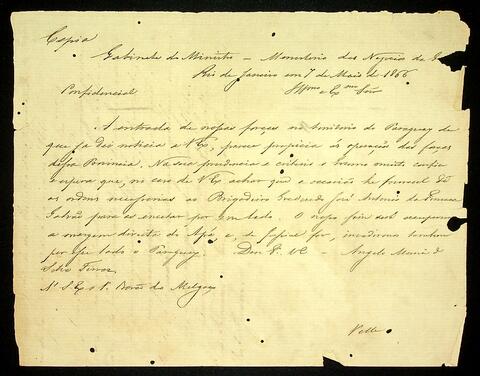 Copia
Gabinete do Ministro – Ministerio dos Negocios da G
Rio de Janeiro em 7 de Maio de 1866
Confidencial Illmo e Exmo Snr
A entrada de nossas forças no territorio do Paraguay de
que já dei noticia a V Ex, parece propicia ás operações das forças
dessa Provincia. Na sua prudencia e criterio o Governo muito confia
e espera que, no caso de V Ex achar que a occasião he favoravel dê
as ordens necessarias ao Brigadeiro Graduado José Antonio da Fonseca
Galvão para as encetar por esse lado. O nosso fim será occuparmos
a margem direita do Apá e, se possivel for, invadirmos tambem
por esse lado o Paraguay. Deos G. V Ex – Angelo Muniz da
Silva Ferraz
A S Ex o Sr Barão de Melgaço